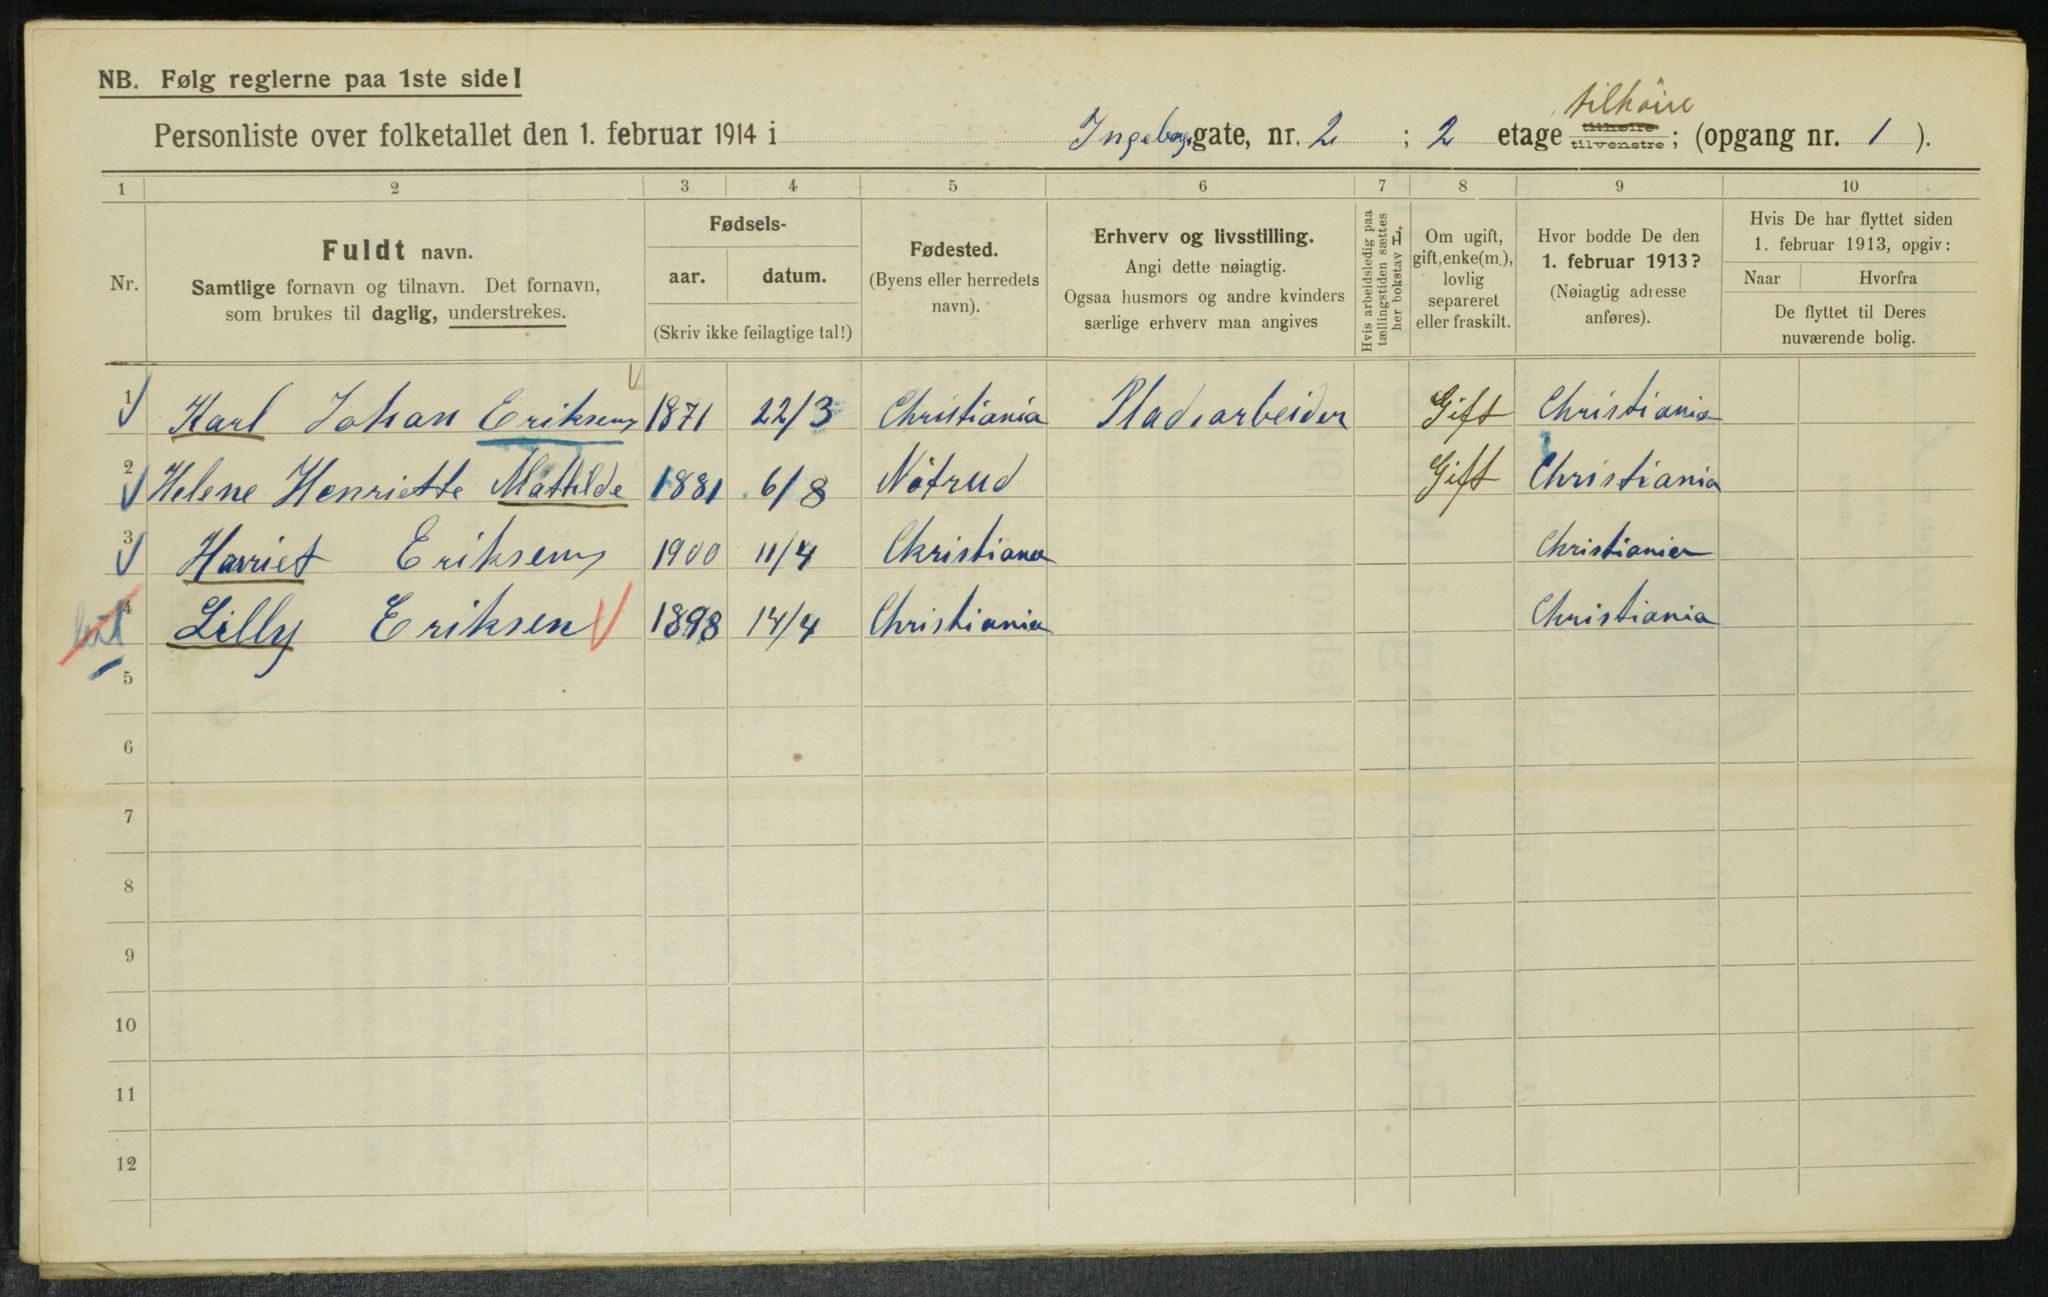 NB. Følg reglerne paa 1ste side!
tilhöire
Personliste over folketallet den 1. februar 1914 i Ingeborgsgate, nr. 2 ; 2 etage tilhøire tilvenstre ; (opgang nr. 1 ).
1 2 3 4 5 6 7 8 9 10
Nr.
Fuldt navn.
Samtlige fornavn og tilnavn. Det fornavn,
som brukes til daglig, understrekes.
Fødsels-
aar. datum.
(Skriv ikke feilagtige tal!)
Fødested.
(Byens eller herredets
navn).
Erhverv og livsstilling.
Angi dette nøiagtig.
Ogsaa husmors og andre kvinders
særlige erhverv maa angives
Hvis arbeidsledig paa
tællingstiden sættes
her bokstav H.
Om ugift,
gift, enke(m.),
lovlig
separeret
eller fraskilt.
Hvor bodde De den
1. februar 1913?
(Nøiagtig adresse
anføres).
Hvis De har flyttet siden
1. februar 1913, opgiv:
Naar Hvorfra
De flyttet til Deres
nuværende bolig.
1 Karl Johan Eriksen 1871 22/3 Christiania Pladsarbeider Gift Christiania
2 Helene Henriette Mathilde 1881 6/8 Gift Christiania
3 Harriet Eriksen 1900 11/4 Christiania Christiania
4 Lilly Eriksen 1898 14/4 Christiania Christiania
5
6
7
8
9
10
11
12